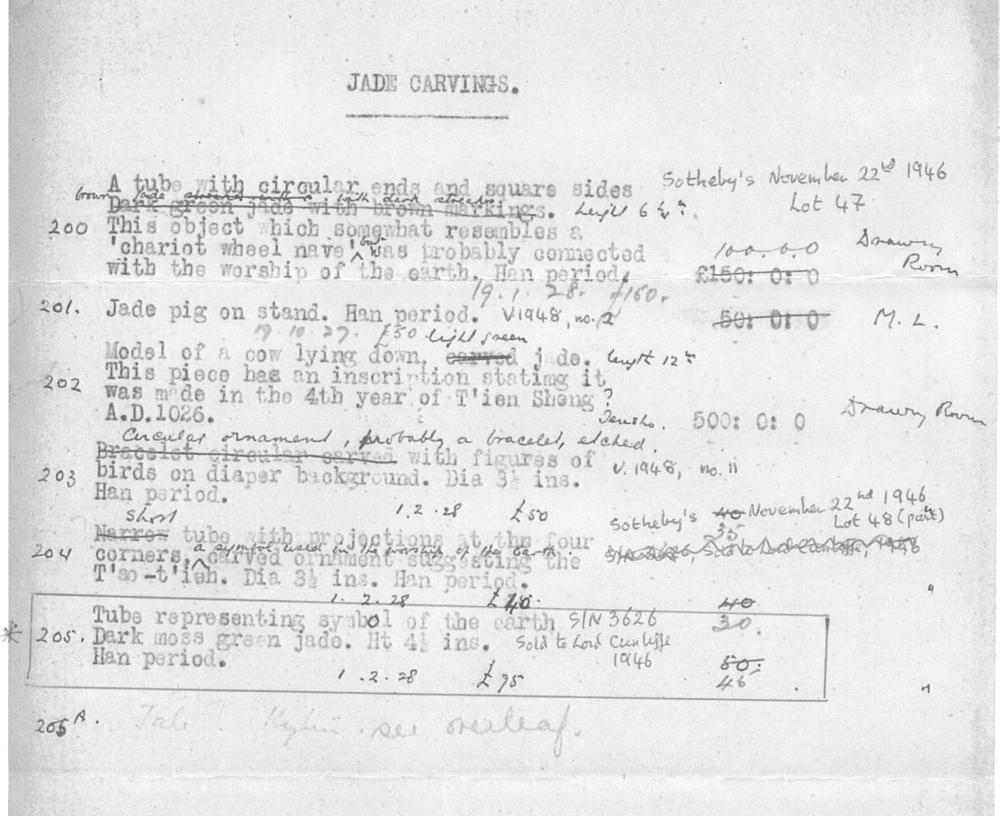 JADE CARVINGS.
A tube with circular ends and square sides
Sotheby's November 22nd 1946
brown jade with dark streaks.
Dark green jade with brown markings. height 6
Lot 47
200 This object which somewhat resembles a
'chariot wheel nave' but was probably connected
100.0.0
Drawing Room
with the worship of the earth. Han period.
£150: 0: 0
19.1.28. £160.
201. Jade pig on stand. Han period. V.1948, no.
50: 0: 0 M. L.
19.10.27. £50 light green
Model of a cow lying down, carved jade. length 12"
202 This piece has an inscription statimg it
was made in the 4th year of T'ien Sheng ?
A.D.1026.
Tensho. 500: 0: 0 Drawing Room
Circular ornament, probably a bracelet, etched
Bracelet circular carved with figures of
203 birds on diaper background. Dia 3½ ins.
V. 1948, no. 11
Han period.
1.2.28 £50
Short
Sotheby's 40 November 22nd 1946
Lot 48 (part)
35
Narrow tube with projections at the four
a symbol used in the worship of the earth.
204 corners, carved ornament suggesting the
T'ao-t'ieh. Dia 3½ ins. Han period.
"
1.2.28 £40.
40
30.
Tube representing symbol of the earth S/N 3626
* 205. Dark moss green jade. Ht 4½ ins. Sold to Lord Cunliffe
1946
Han period.
50:
1.2.28 £75
45
"
205A. Kylin. see overleaf.